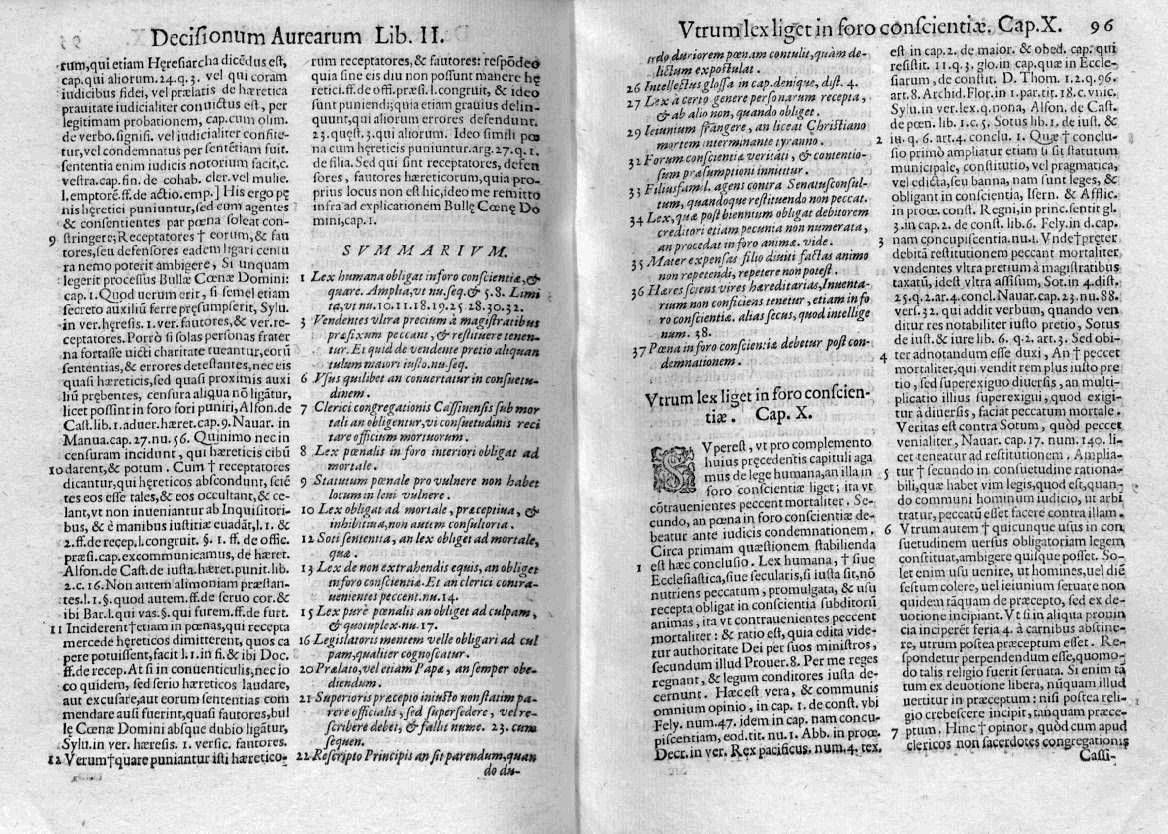 Decisionum Aurearum Lib. II.
rum, qui etiam Hęresiarcha dicēdus est,
cap. qui aliorum. 24. q. 3. vel qui coram
iudicibus fidei, vel prælatis de hæretica
prauitate iudicialiter conuictus est, per
legitimam probationem, cap. cum olim.
de verbo. signifi. vel iudicialiter confite-
tur, vel condemnatus per sentētiam fuit.
sententia enim iudicis notorium facit, c.
vestra. cap. fin. de cohab. cler. vel mulie.
l. emptorē. ff. de actio. emp.] His ergo pę
nis hęretici puniuntur, sed eum agentes
& consentientes par pœna soleat con-
9 stringere; Receptatores † eorum, & fau
tores, seu defensores eadem ligari centu
ra nemo poterit ambigere, Si unquam
legerit processus Bullæ Cœnæ Domini:
cap. 1. Quod uerum erit, si semel etiam
secreto auxiliū ferre pręsumpserit, Sylu.
in ver. hęresis. 1. ver. fautores, & ver. re-
ceptatores. Porrò si solas personas frater
na fortasse uicti charitate tueantur, eorū
sententias, & errores detestantes, nec eis
quasi hæreticis, sed quasi proximis auxi
liū prębentes, censura aliqua nō ligātur,
licet possint in foro fori puniri, Alfon. de
Cast. lib. 1. aduer. hæret. cap. 9. Nauar. in
Manua. cap. 27. nu. 56. Quinimo nec in
censuram incidunt, qui hæreticis cibū
10 darent, & potum. Cum † receptatores
dicantur, qui hęreticos abscondunt, sciē
tes eos esse tales, & eos occultant, & ce-
lant, vt non inueniantur ab Inquisitori-
bus, & è manibus iustitiæ euadāt, l. 1. &
2. ff. de recep. l. congruit. §. 1. ff. de offic.
præsi. cap. excommunicamus, de hæret.
Alfon. de Cast. de iusta. hæret. punit. lib.
2. c. 16. Non autem alimoniam præstan-
tes. l. 1. §. quod autem. ff. de seruo cor. &
ibi Bar. l. qui vas. §. qui furem. ff. de furt.
11 Inciderent † etiam in pœnas, qui recepta
mercede hęreticos dimitterent, quos ca
pere potuissent, facit l. 1. in fi. & ibi Doc.
ff. de recep. At si in conuenticulis, nec io
co quidem, sed serio hæreticos laudare,
aut excusare, aut eorum sententias com
mendare ausi fuerint, quasi fautores, bul
lę Cœnæ Domini absque dubio ligātur,
Sylu. in ver. hæresis. 1. versic. fautores.
12 Verum † quare puniantur isti hæretico-
rum receptatores, & fautores: respōdeo
quia sine eis diu non possunt manere hę
retici. ff. de offi. præsi. l. congruit, & ideo
sunt puniendi; quia etiam grauius delin-
quunt, qui aliorum errores defendunt.
23. quest. 3. qui aliorum. Ideo simili pœ
na cum hęreticis puniuntur. arg. 27. q. 1.
de filia. Sed qui sint receptatores, defen
sores, fautores hæreticorum, quia pro-
prius locus non est hic, ideo me remitto
infra ad explicationem Bullę Cœnę Do
mini, cap. 1.
SVMMARIVM.
1 Lex humana obligat in foro conscientiæ, &
quare. Amplia, vt nu. seq. & 5. 8. Limi
ta, vt nu. 10. 11. 18. 19. 25. 28. 30. 32.
3 Vendentes vltra precium à magistratibus
præfixum peccant, & restituere tenen-
tur. Et quid de vendente pretio aliquan
tulum maiori iusto. nu. seq.
6 Vsus quilibet an conuertatur in consuetu-
dinem.
7 Clerici congregationis Cassinensis sub mor
tali an obligentur, vi consuetudinis reci
tare officium mortuorum.
8 Lex pœnalis in foro interiori obligat ad
mortale.
9 Statutum pœnale pro vulnere non habet
locum in leui vulnere.
10 Lex obligat ad mortale, præceptiua, &
inhibitiua, non autem consultoria.
12 Soti sententia, an lex obliget ad mortale,
quæ.
13 Lex de non extrahendis equis, an obliget
in foro conscientiæ. Et an clerici contra-
uenientes peccent. nu. 14.
15 Lex purè pœnalis an obliget ad culpam,
& quotuplex. nu. 17.
16 Legislatoris mentem velle obligari ad cul
pam, qualiter cognoscatur.
20 Prælato, vel etiam Papæ, an semper obe-
diendum.
21 Superioris præcepto iniusto non statim pa-
rere officialis, sed supersedere, vel re-
scribere debet, & fallit nume. 23. cum
sequen.
22 Rescripto Principis an sit parendum, quan
do du-
Vtrum lex liget in foro conscientiæ. Cap. X. 96
do duriorem pœnam contulit, quàm de-
lictum expostulat.
26 Intellectus glossæ in cap. denique, dist. 4.
27 Lex à certo genere personarum recepta,
& ab alio non, quando obliget.
29 Ieiunium frangere, an liceat Christiano
mortem interminante tyranno.
32 Forum conscientiæ veritati, & contentio-
sum præsumptioni innititur.
33 Filiusfamil. agens contra Senatusconsul-
tum, quandoque restituendo non peccat.
34 Lex, quæ post biennium obligat debitorem
creditori etiam pecunia non numerata,
an procedat in foro animæ. vide.
35 Mater expensas filio diuiti factas animo
non repetendi, repetere non potest.
36 Hæres sciens vires hæreditarias, Inuenta-
rium non conficiens tenetur, etiam in fo
ro conscientiæ. alias secus, quod intellige
num. 38.
37 Pœna in foro conscientiæ debetur post con-
demnationem.
Vtrum lex liget in foro conscien-
tiæ. Cap. X.
SVperest, vt pro complemento
huius pręcedentis capituli aga
mus de lege humana, an illa in
foro conscientiæ liget; ita vt
cōtrauenientes peccent mortaliter. Se-
cundo, an pœna in foro conscientiæ de-
beatur ante iudicis condemnationem,
Circa primam quæstionem stabilienda
1 est hæc conclusio. Lex humana, † siue
Ecclesiastica, siue secularis, si iusta sit, nō
nutriens peccatum, promulgata, & usu
recepta obligat in conscientia subditorū
animas, ita vt contrauenientes peccent
mortaliter: & ratio est, quia edita vide-
tur authoritate Dei per suos ministros,
secundum illud Prouer. 8. Per me reges
regnant, & legum conditores iusta de-
cernunt. Hæc est vera, & communis
omnium opinio, in cap. 1. de const. vbi
Fely. num. 47. idem in cap. nam concu-
piscentiam, eod. tit. nu. 1. Abb. in proœ.
Decr. in ver. Rex pacificus. num. 4. tex.
est in cap. 2. de maior. & obed. cap. qui
resistit. 11. q. 3. glo. in cap. quæ in Eccle-
siarum, de constit. D. Thom. 1. 2. q. 96.
art. 8. Archid. Flor. in 1. par. tit. 18. c. vnic.
Sylu. in ver. lex. q. nona, Alfon. de Cast.
de pœn. lib. 1. c. 5. Sotus lib. 1. de iust. &
2 iu. q. 6. art. 4. conclu. 1. Quæ † conclu-
sio primò ampliatur etiam si sit statutum
municipale, constitutio, vel pragmatica,
vel edicta, seu banna, nam sunt leges, &
obligant in conscientia, Isern. & Afflic.
in proœ. const. Regni, in princ. sentit gl.
3. in cap. 2. de const. lib. 6. Fely. in d. cap.
3 nam concupiscentia. nu. 1. Vnde † pręter
debitā restitutionem peccant mortaliter
vendentes vltra pretium à magistratibus
taxatū, idest vltra assisum, Sot. in 4. dist.
25. q. 2. ar. 4. concl. Nauar. cap. 23. nu. 88.
vers. 32. qui addit verbum, quando ven
ditur res notabiliter iusto pretio, Sotus
de iust. & iure lib. 6. q. 2. art. 3. Sed obi-
4 ter adnotandum esse duxi, An † peccet
mortaliter, qui vendit rem plus iusto pre
tio, sed superexiguo diuersis, an multi-
plicatio illius superexigui, quod exigi-
tur à diuersis, faciat peccatum mortale.
Veritas est contra Sotum, quòd peccet
venialiter, Nauar. cap. 17. num. 140. li-
cet teneatur ad restitutionem. Amplia-
5 tur † secundo in consuetudine rationa-
bili, quæ habet vim legis, quod est, quan-
do communi hominum iudicio, ut arbi
tratur, peccatū esset facere contra illam.
6 Vtrum autem † quicunque usus in con
suetudinem uersus obligatoriam legem
constituat, ambigere quisque posset. So-
let enim usu uenire, ut homines, uel diē
festum colere, uel ieiunium seruare non
quidem tāquam de præcepto, sed ex de-
uotione incipiant. Vt si in aliqua prouin
cia inciperēt feria 4. à carnibus abstine-
re, utrum postea præceptum esset. Re-
spondetur perpendendum esse, quomo-
do talis religio fuerit seruata. Si enim tā
tum ex deuotione libera, nūquam illud
uertitur in præceptum: nisi postea reli-
gio crebescere incipit, tanquam præce-
7 ptum, Hinc † opinor, quòd cum apud
clericos non sacerdotes congregationis
Cassi-